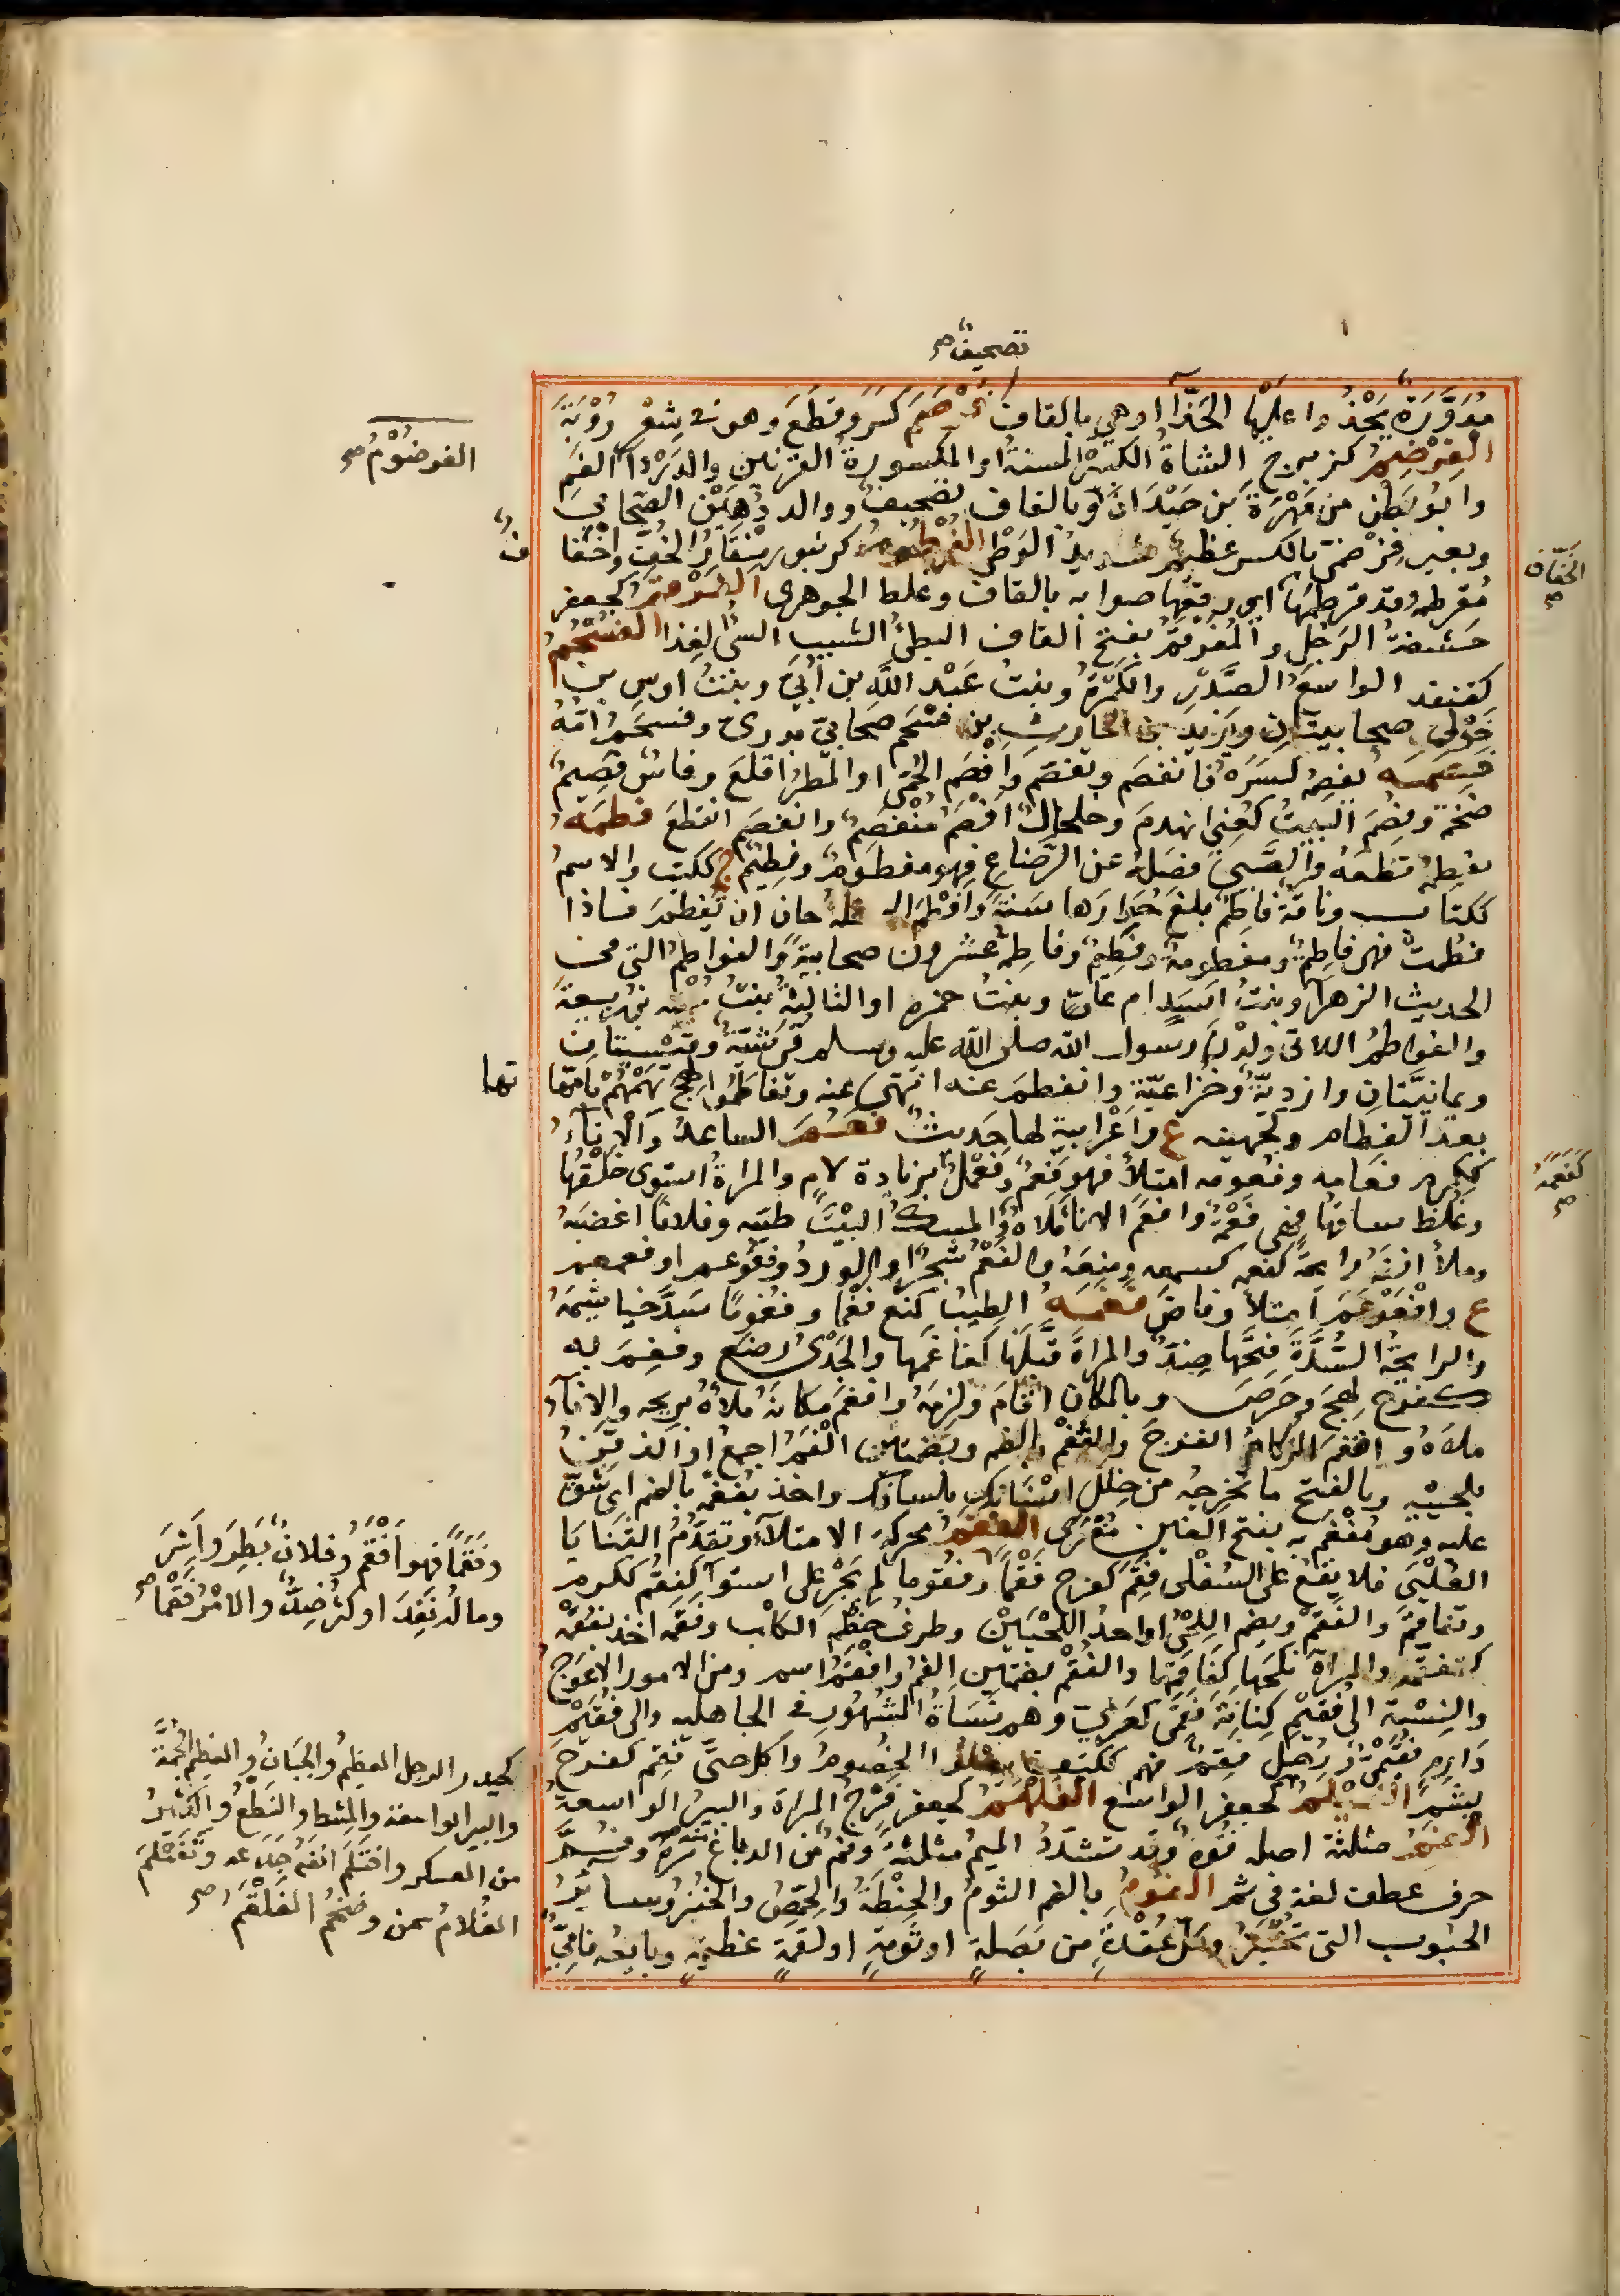 تصحيف صح
مُدَوَّرَةٌ يَحْذُوا عليها الحَذَّا او هي بالقاف كَسَرَ وقَطَعَ وهو في شِعْرِ رُوْبَةَ
الفِرْضِمُ كزبرج الشاةُ الكبيرةُ المسنةُ او المكسورةُ القرنين والدَرْدَآ الفَمِ
وابو بَطْنٍ من مَهْرَةَ بن حَيْدَانَ وبالقاف تصحيف ووالد ذُهَبْنِ الصَحابيّ
وبعير فِرْضِمىّ بالكسر عظيم شديدُ الوَطْءِ الفُرْطُومُ كزنبور مِنْقَارُ الخُفّ واخفا ف
مُفَرطمة وقد فرطمها اي رقعها صوابه بالقاف وغلط الجوهرى الفَرْقَمُ كجعفر
حَشَفةُ الرَجُلِ والمُفَرقَمُ بفتح القاف البطئُ الشبيب السيئُ الغذا الفُسْحُمُ
كقنفذ الواسعُ الصَّدْرِ والكَمَرَةُ وبنتُ عَبْد اللّه بن اُبَيّ وبنتُ اوسِ بن
خَوْلِيّ صحابيتانِ ويَزيد بن الحارثِ بن فُسْحُم صحابيّ بدرىّ وفسحمُ امّهُ
فصمه يفصِمُه كسَرَهُ فانفصم وتفصّم وافْصَم الحُمَّى او المَطَرُ اقلعَ وفاسٌ فَصِيمٌ
ضخمةٌ وفُصِمَ البيتُ كعُنِيَ انهدمَ وخلخالٌ افْصَمُ مُنْفَصِمٌ وانفصم انقطع فطمَهُ
يفطِمُه قطَعَهُ والصَّبِيَّ فصَلهُ عن الرَّضاعِ فهو مفطومٌ وفَطِيْمٌ ج ككتب والاسمُ
ككتاب وناقة فاطِمٌ بلغ حُوارها سَنَةً وافْطَمَ السخلةُ حان ان تُفطمَ فاذا
فُطِمتْ فهى فاطِمٌ ومفطومةٌ وفطِيمٌ وفاطِمَةُ عشرون صحابيةً والفواطِمُ التى فى
الحديث الزهرآ وبنتُ اَسَدٍ ام عليّ وبنتُ حمزه او الثالثةُ بنتُ عُتْبه بن ربيعةَ
والفواطِمُ اللاتى ولَدْنَ رسول اللّه صلى اللّه عليه وسلم قُرَشيّةٌ وقيْسيّتانِ
ويمانيّتانِ وازديّةٌ وخُزاعيّةٌ وانفطمَ عنه انتهى عنه وتفاطموا لهج بَهَمُهُمْ بامّها تها
بعد الفِطامِ وكجُهينه ع واَعْرابيةٌ لها حديثٌ فعُمَ الساعدُ والاِناءُ
ككرم فعامه وفعومه امتلأ فهو فَعْمٌ وفَعْمَلٌ بزيادة لامٍ والمراةُ استوى خَلْقُها
وغلظ ساقُها فهي فَعْمَةٌ وافعَمَ الاناءَ ملأه والمسكُ البيْتَ طيّبه وفلانًا اغضبَهُ
وملأ انفَهُ رائحةً كفعمه كسمعه ومنعَهُ والفَعْمُ شجَرٌ او الوردُ وفعوعم او فعمعم
ع وافْعَوْعَمَ امتلأ وفاضَ فغمهُ الطِيبُ كمنع فَغْما وفُغومًا سَدَّ خياشيمَهُ
والرايحةُ السُّدَّةَ فتَحَّها ضِدٌّ والمراةَ قبَّلَها كفاغَمَها والجَدْىُ رضَع وفَغِمَ به
كفرح لهجَ وحَرَصَ وبالمكان اقامَ ولزِمَهُ وافغَمَ مكانَهُ ملأهُ بريحه والاناءَ
ملأهُ وانفغمَ الزكامُ انفرجَ والفُغْمُ بالضم وبضمتين الفَمُ اجمعُ او الذقَنُ
بلحيَيْهِ وبالفتح ما تُخرِجُه من خِلَلِ اسنَانِكَ بلسانِكَ واخذ بفُغمِه بالضم اى شَقَّ
عليه وهو مُفْغَمٌ به بفتح الغين مُغْرًى الفقمُ محركه الامتلآءُ وتقدُّمُ الثَّنايَا
العُلْيَا فلا تقعُ على السُفْلَى فَقِمَ كفرح فَقَمًا وفقوما لم يَجْرِ على استوآ كفَقُمَ ككرم
وتفاقَمَ والفُقمُ ويضم اللِحْىُ او احدُ اللَّحْيَيْنِ وطرفُ خَطْمِ الكلْب وفقَمه اخذ بفُقمِهْ
كتفقّمَه والمراةَ نكحَها كفاقَمَها والفُقُمُ بضمتين الفَمُ وافْقَمُ اسم ومن الامور الاعوَج
والنِسْبَة الى فُقَيْمِ كِنَانةَ فُقَمِيّ كعُرَنِيّ وهم نَسَأةُ الشُهُورِ في الجاهليه والى فُقَيْمِ
دَارِمٍ فُقَيْمِيٌّ ورجل فَقِمٌ فهم ككتف يعلو الخصومَ واكل حتى فَقِمَ كفرح
بشِمَ الفَيْلَمُ كجعفر الواسع الفَلْهَمُ كجعفر فَرْجُ المراة والبيرُ الواسعةُ
الفمُ مثلثة اصله فَوْهٌ وقد تشدّدُ الميمُ مثلثةً وفُمٌّ من الدباغ مَرّةٌ منه وفُمَّ
حرف عطف لغة فى ثمّ الفُومُ بالضم الثومُ والحِنْطَةُ والحِمّصُ والخُبْزُ وسايرُ
الحُبوبِ التى تُخْبَزُ وكلّ عُقْدَةٍ من بَصَلةٍ او ثُومةٍ او لُقمَةٍ عظيمةٍ وبايعُه فامِيٌّ
الفرضُوْمُ صح
الخَفّاف صح
كفَعَّمَهُ صح
وفَقَمًا فهو اَفْقَمُ وفلانٌ بَطِرَ واَشِرَ
ومالُه نَفِدَ او كثُر ضِدٌّ والامْرُ فَقَمًا صح
كحيدر الرجل العظيمُ والجبانُ والعظيمُ الجُمَّةَ
والبير الواسعة والمِشط والنطعُ والكثيرُ
من العسكر وافْتَلَمَ انفَهُ جَدَعه وتَفَيْلَمَ
الغُلامُ سمن وضخم الفَلْقَمُ صح